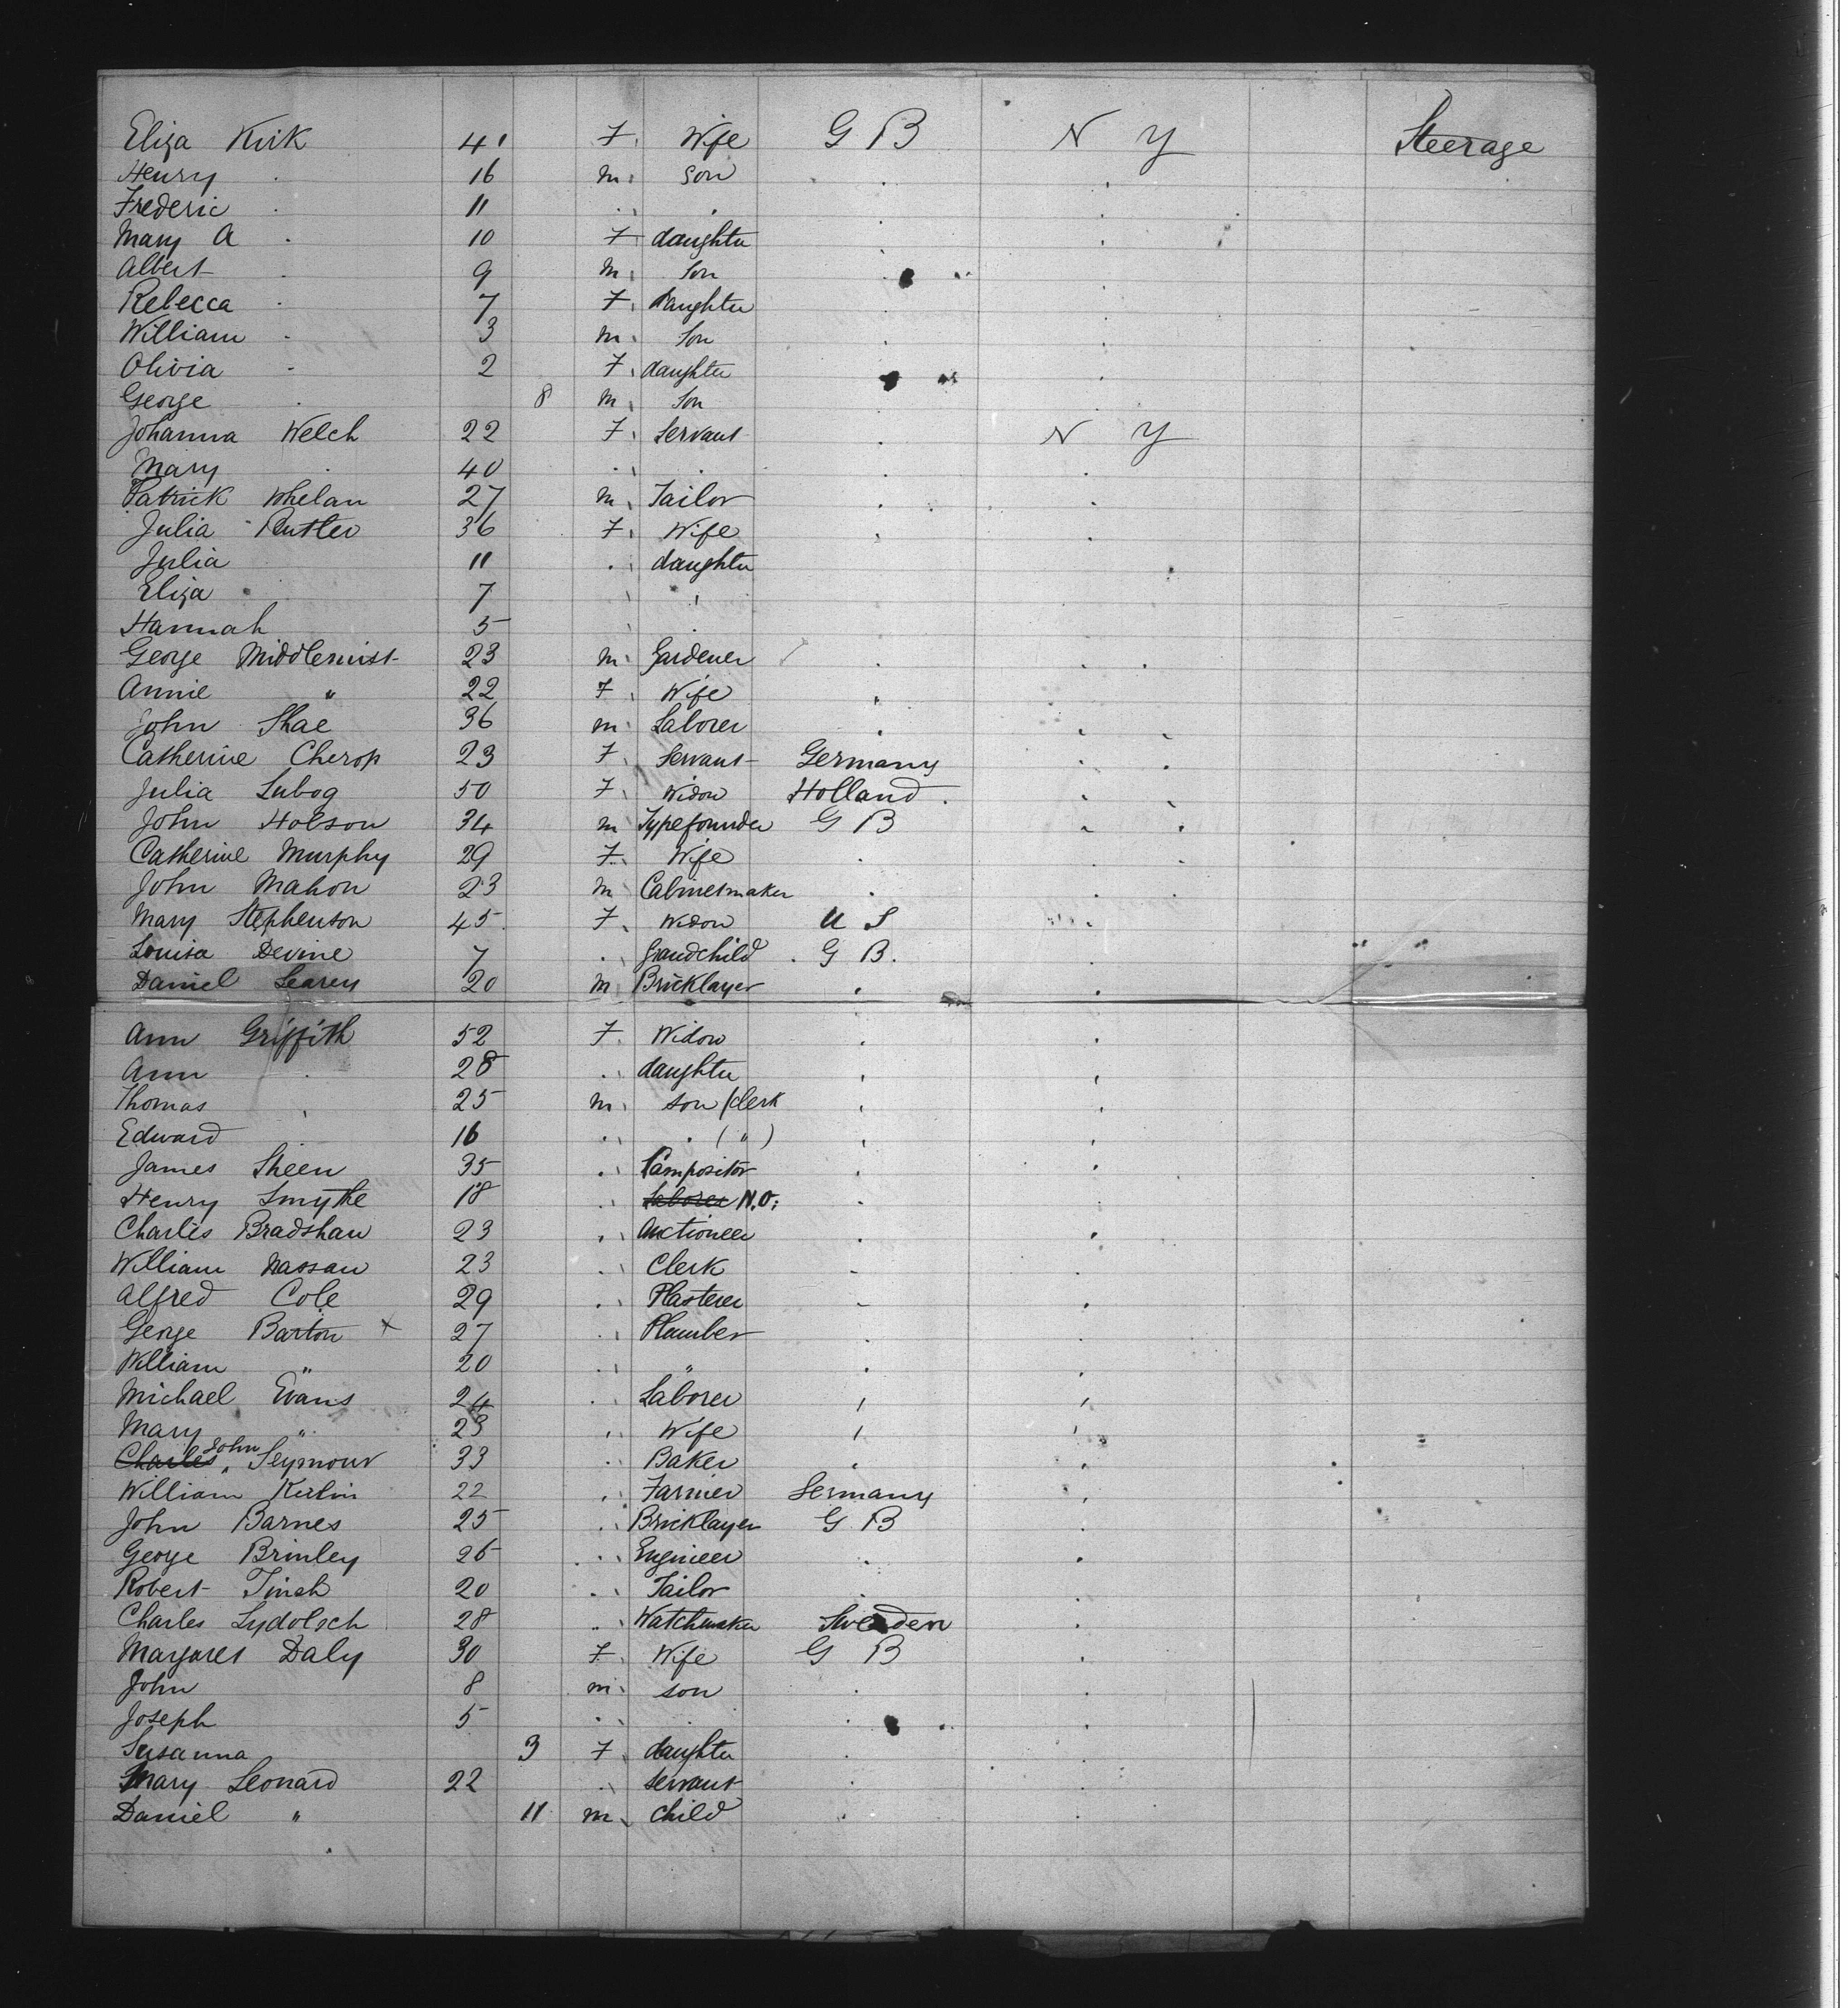 Eliza Kirk 41 F. Wife G B N Y Steerage
Henry . 16 m. son . .
Frederic . 11 . . . . .
Mary A . 10 F daughter . .
Albert . 9 m. Son . .
Rebecca . 7 F. daughter . .
William . 3 m. Son . .
Olivia . 2 F. daughter . .
George . 8 m. Son . .
Johanna Welch 22 F. Servant . N Y
Mary . 40 . . . . .
Patrick Whelan 27 m. Tailor . .
Julia 36 F. Wife . .
Julia 11 . . daughter .
Eliza . 7 . .
Hannah 5
George Middlemist 23 m. Gardener . . .
Annie " 22 F. Wife .
John Shae 36 m. Laborer . . .
Catherine Cherop 23 F. Servant Germany . .
Julia Lubog 50 F. Widow Holland . . .
John Hobson 34 m Typefounder G B . .
Catherine Murphy 29 F. Wife . . .
John Mahon 23 m. Cabinetmaker . . .
Mary Stephenson 45 F. Widow U S .
Louisa Devine 7 . grandchild . G B. .
Daniel Learey 20 m. Bricklayer . .
Ann Griffith 52 F. Widow . .
Ann . 28 . . daughter . .
Thomas . 25 m. son (clerk . .
Edward 16 . . . ( " ) . .
James Sheen 35 . . Compositor . .
Henry Smythe 18 . . Laborer N.O. . .
Charles Bradshaw 23 . . Auctioneer . .
William Nassau 23 . . Clerk . .
Alfred Cole 29 . . Plasterer . .
George Barton x 27 . . Plumber . .
William " 20 . . " . .
Michael Evans 24 . . Laborer . .
Mary " 23 . . Wife . .
Charles John Seymour 33 . . Baker . .
William 22 . . Farmer Germany .
John Barnes 25 . . Bricklayer G B .
George Brinley 26 . . Engineer . .
Robert Tinsh 20 . . Tailor . .
Charles Lydolsch 28 . . Watchmaker Sweden .
Margaret Daly 30 F. Wife G B .
John 8 m. son . .
Joseph 5 . . . . .
Susanna 3 F. daughter . .
Mary Leonard 22 . . servant . .
Daniel " 11 m. child . .